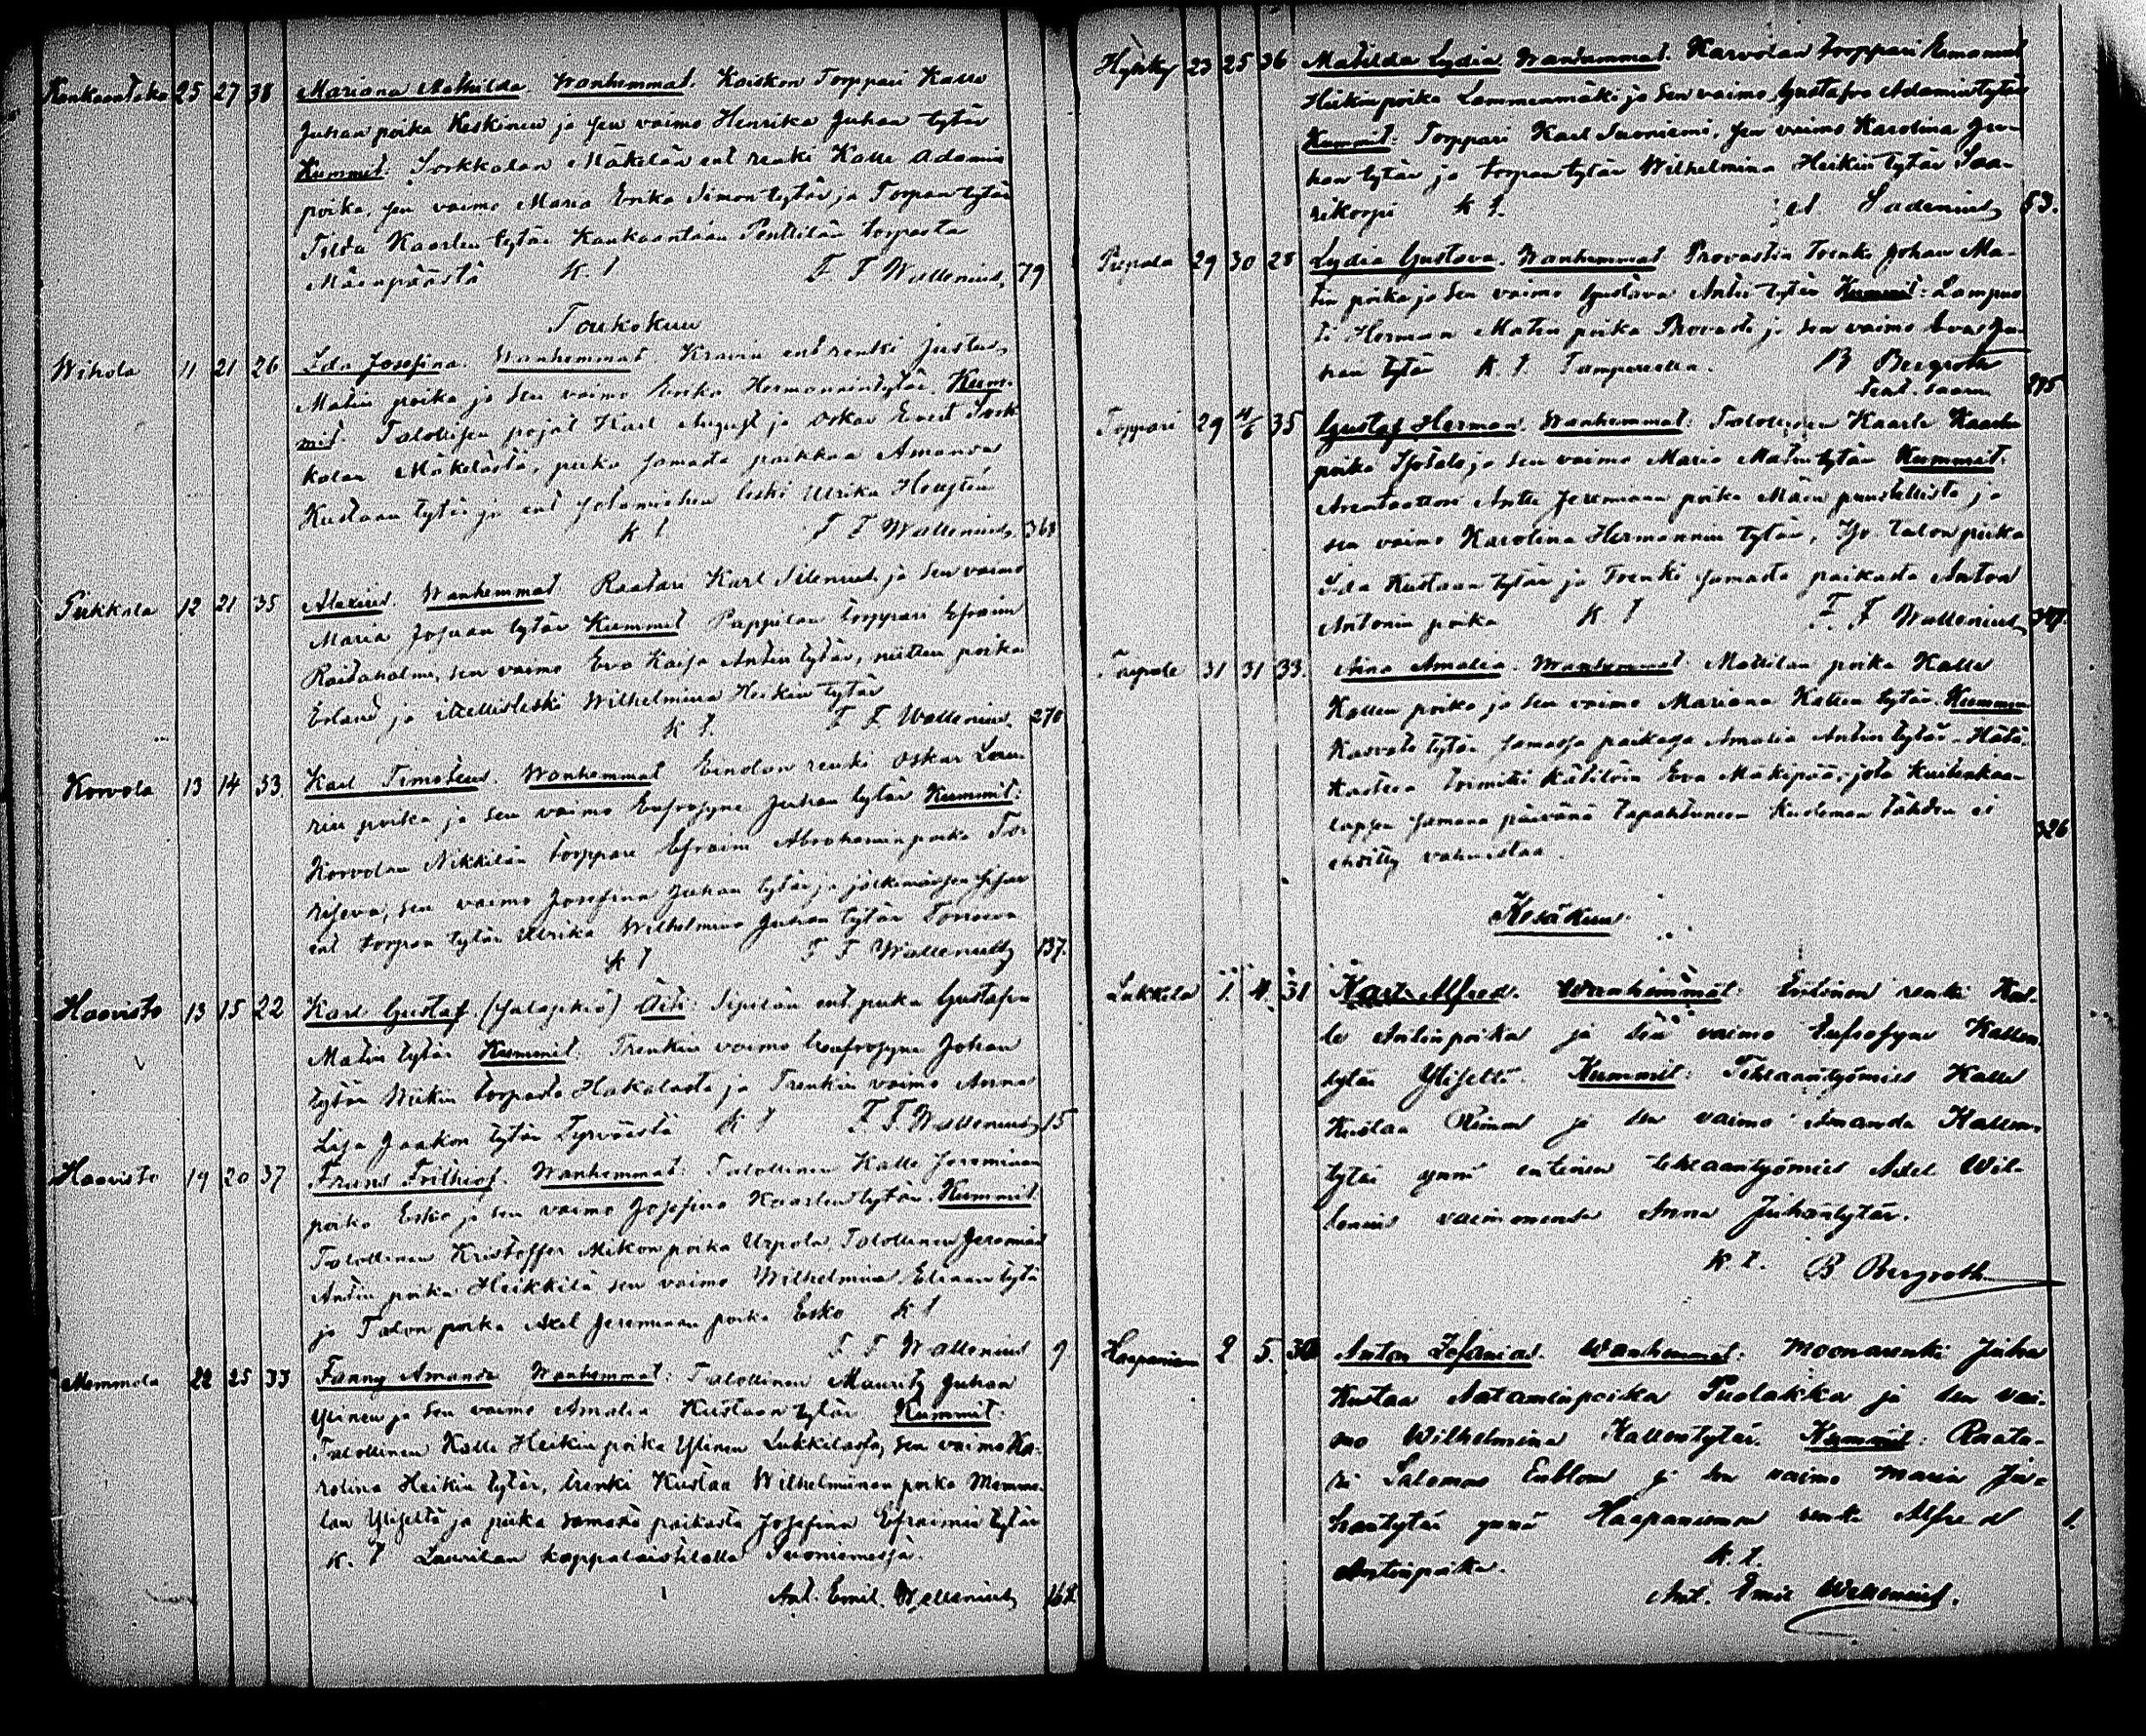 Kankaantaka 25 27 38 Mariana Mathilda. Wanhemmat. Kaiskon Torppari Kalle
Juhan poika Keskinen ja sen vaimo Henrika Juhan tytär
Kummit: Sorkkalan Mäkelän ent renki Kalle Adamin
poika, sen vaimo Maria Erika Simon tytär ja Torpan tytär
Tilda Kaarlen tytär Kankaantaan Penttilän torpasta
Mäenpäästä K. t F F Wallenius 79
Toukokuu
Wihola 11 21 26 Ida Josefina. Wanhemmat. Kranin ent renki Justus
Matin poika ja sen vaimo Erika Hermannin tytär. Kum-
mit. Talollisen pojat Karl August ja Oskar Evert Sork
kalan Mäkelästä, piika samasta paikkaa Amanda
Kustaan tytär ja ent sotamiehen leski Ulrika
K t F F Wallenius 368
Pirkkala 12 21 35 Alexius. Wanhemmat Raatari Karl Silenius ja sen vaimo
Maria Josuan tytär Kummit Pappilan torppari Efraim
Raitaholmi, sen vaimo Eva Kaisa Antin tytär, niitten poika
Erland ja itsellisleski Wilhelmina Heikin tytär
K t. F F Wallenius 270
Korvola 13 14 33. Karl Timoteus. Wanhemmat renki Oskar Lau-
rin poika ja sen vaimo Eufrosyne Juhan tytär Kummit:
Korvolan Nikkilän torppari Efraim Abrahamin poika Tor
riseva, sen vaimo Josefina Juhan tytär ja jälkimäisen sisar
ent torpan tytär Ulrika Wilhelmina Juhan tytär Torriseva
K t F F Wallenius 137.
Haavisto 13 15 22 Karl Gustaf (salasikiö) Äiti: Sipilän ent piika Gustafva
Matin tytär Kummit. Trenkin vaimo Eufrosyne Johan
tytär Wiikin torpasta Hakalasta ja Trenkin vaimo Anna
Lisa Jaakon tytär Tyrväästä K t F. F. Wallenius 15
Haavisto 19 20 37 Frans Frithiof. Wanhemmat: Talollinen Kalle Jeremiaan
poika Esko ja sen vaimo Josefina Kaarlen tytär. Kummit.
Talollinen Kristoffer Mikon poika Urpola, Talollinen Jeremias
Antin poika Heikkilä sen vaimo Wilhelmina Eliaan tytä
ja Talon poika Axel Jeremiaan poika Esko K t
F F Wallenius 9
Memmola 22 25 33 Fanny Amanda Wanhemmat: Talollinen Mauritz Juhan
Ylinen ja sen vaimo Amalia Kustaan tytär Kummit:
Talollinen Kalle Heikin poika Ylinen Lukkilasta, sen vaimo Ka-
rolina Heikin tytär, trenki Kustaa Wilhelminan poika Memmo-
lan Yliseltä ja piika samasta paikasta Josefina Efraimin tytär
K. t Laurilan kappalaistilalla Suoniemessä.
Ant. Emil. Wallenius 168
Hyrkky 23 25 36 Matilda Lydia Wanhemmat. Karvolan torppari Emanuel
Heikin poika Lammenmäki ja sen vaimo Gustafva Adamin tytär
Kummit: Torppari Karl Suoniemi, sen vaimo Karolina Ju-
han tytär ja torpan tytär Wilhelmina Heikin tytär Saa-
rikorpi K t. A Sadenius 53.
Piepala 29 30 28 Lydia Gustava. Wanhemmat Provastin trenki Johan Ma-
tin poika ja sen vaimo Gustava Antin tytär Kummit: Lampuo
ti Herman Matin poika Provasti ja sen vaimo Eva Ju-
han tytär K. t. Tampereella. B Bergroth
275
Toppari 29 4/6 35 Gustaf Herman. Wanhemmat: Talollinen Kaarle Kaarlen
poika Isotalo ja sen vaimo Maria Matin tytär Kummit.
Arentaattori Antti Jeremiaan poika Mäen puustellista ja
sen vaimo Karolina Hermannin tytär, Iso talon piika
Ida Kustaan tytär ja Trenki samasta paikasta Anton
Antonin poika K t F. F Wallenius 347.
31 31 33. Aina Amalia. Wanhemmat. Mattilan poika Kalle
Kallen poika ja sen vaimo Mariana Kallen tytär. Kummin
Kasvatti tytär samassa paikassa Amalia Antin tytär. Hätä-
kasteen toimitti kätilöin Eva Mäkipää, jota kuitenkaan
lapsen samana päivänä tapahtuneen kuoleman tähden ei
ehditty vahvistaa. 326
Kesäkuu.
Lukkila 1. 4. 31 Karl Alfred. Wanhemmat: Entinen renki Kal-
le Antinpoika ja sen vaimo Eufrosyne Kallen-
tytär Yliseltä. Kummit: Tehtaantyömies Kalle
Kustaa Rimm ja sen vaimo Amanda Kallen-
tytär ynnä entinen tehtaantyömies Axel Wil-
lenius vaimonensa Anna Juhantytär.
K. t. B. Bergroth
Haapaniem 2 5. 30 Anton Sefanias. Wanhemmat: Moonarenki Juha
Kustaa Aataminpoika Puolakka ja sen vai-
mo Wilhelmina Kallentytär. Kummit: Raata-
ri Salomon Enblom ja sen vaimo Maria Ju-
hantytär ynnä Haapaniemen renki Alfred 1.
Antinpoika. K. t.
Ant. Emil Wallenius.